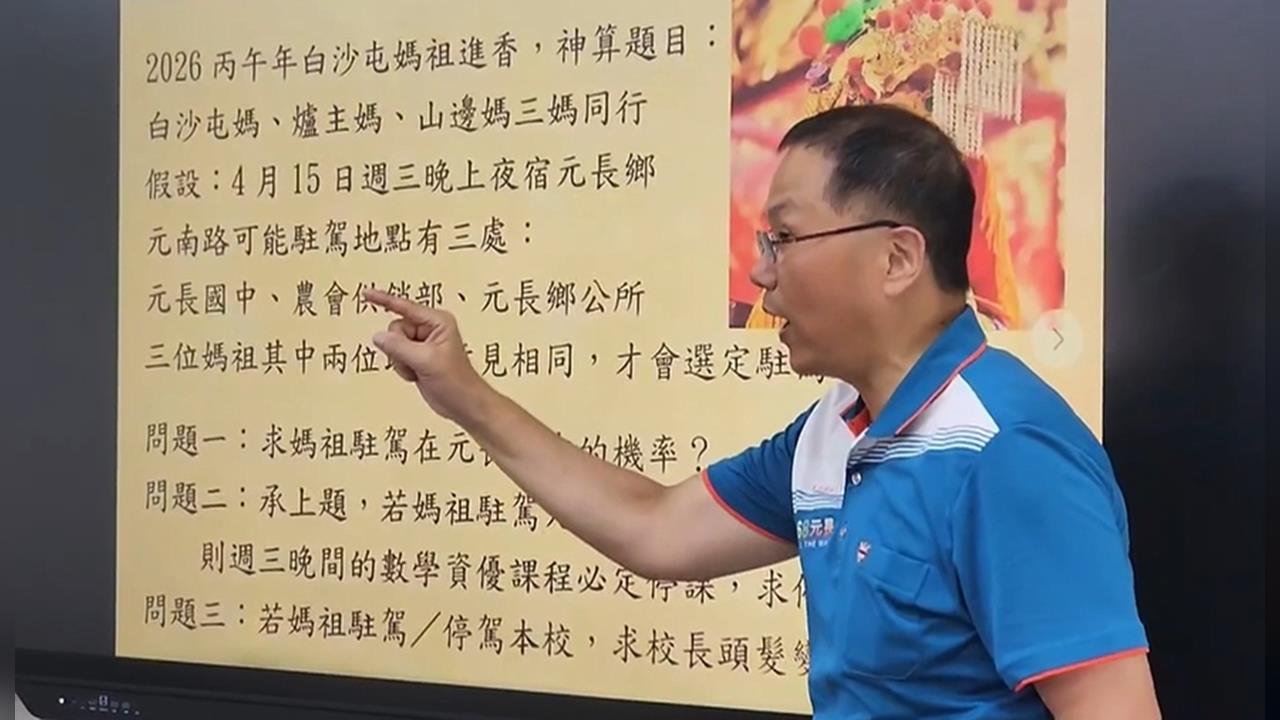 2026 丙午年白沙屯媽祖進香，神算題目：
白沙屯媽、爐主媽、山邊媽三媽同行
假設：4 月 15 日週三晚上夜宿元長鄉
元南路可能駐駕地點有三處：
元長國中、農會供銷部、元長鄉公所
三位媽祖其中兩位 意見相同，才會選定駐駕
問題一：求媽祖駐駕在元長 的機率？
問題二：承上題，若媽祖駐駕
則週三晚間的數學資優課程必定停課，求
問題三：若媽祖駐駕／停駕本校，求校長頭髮變
元長